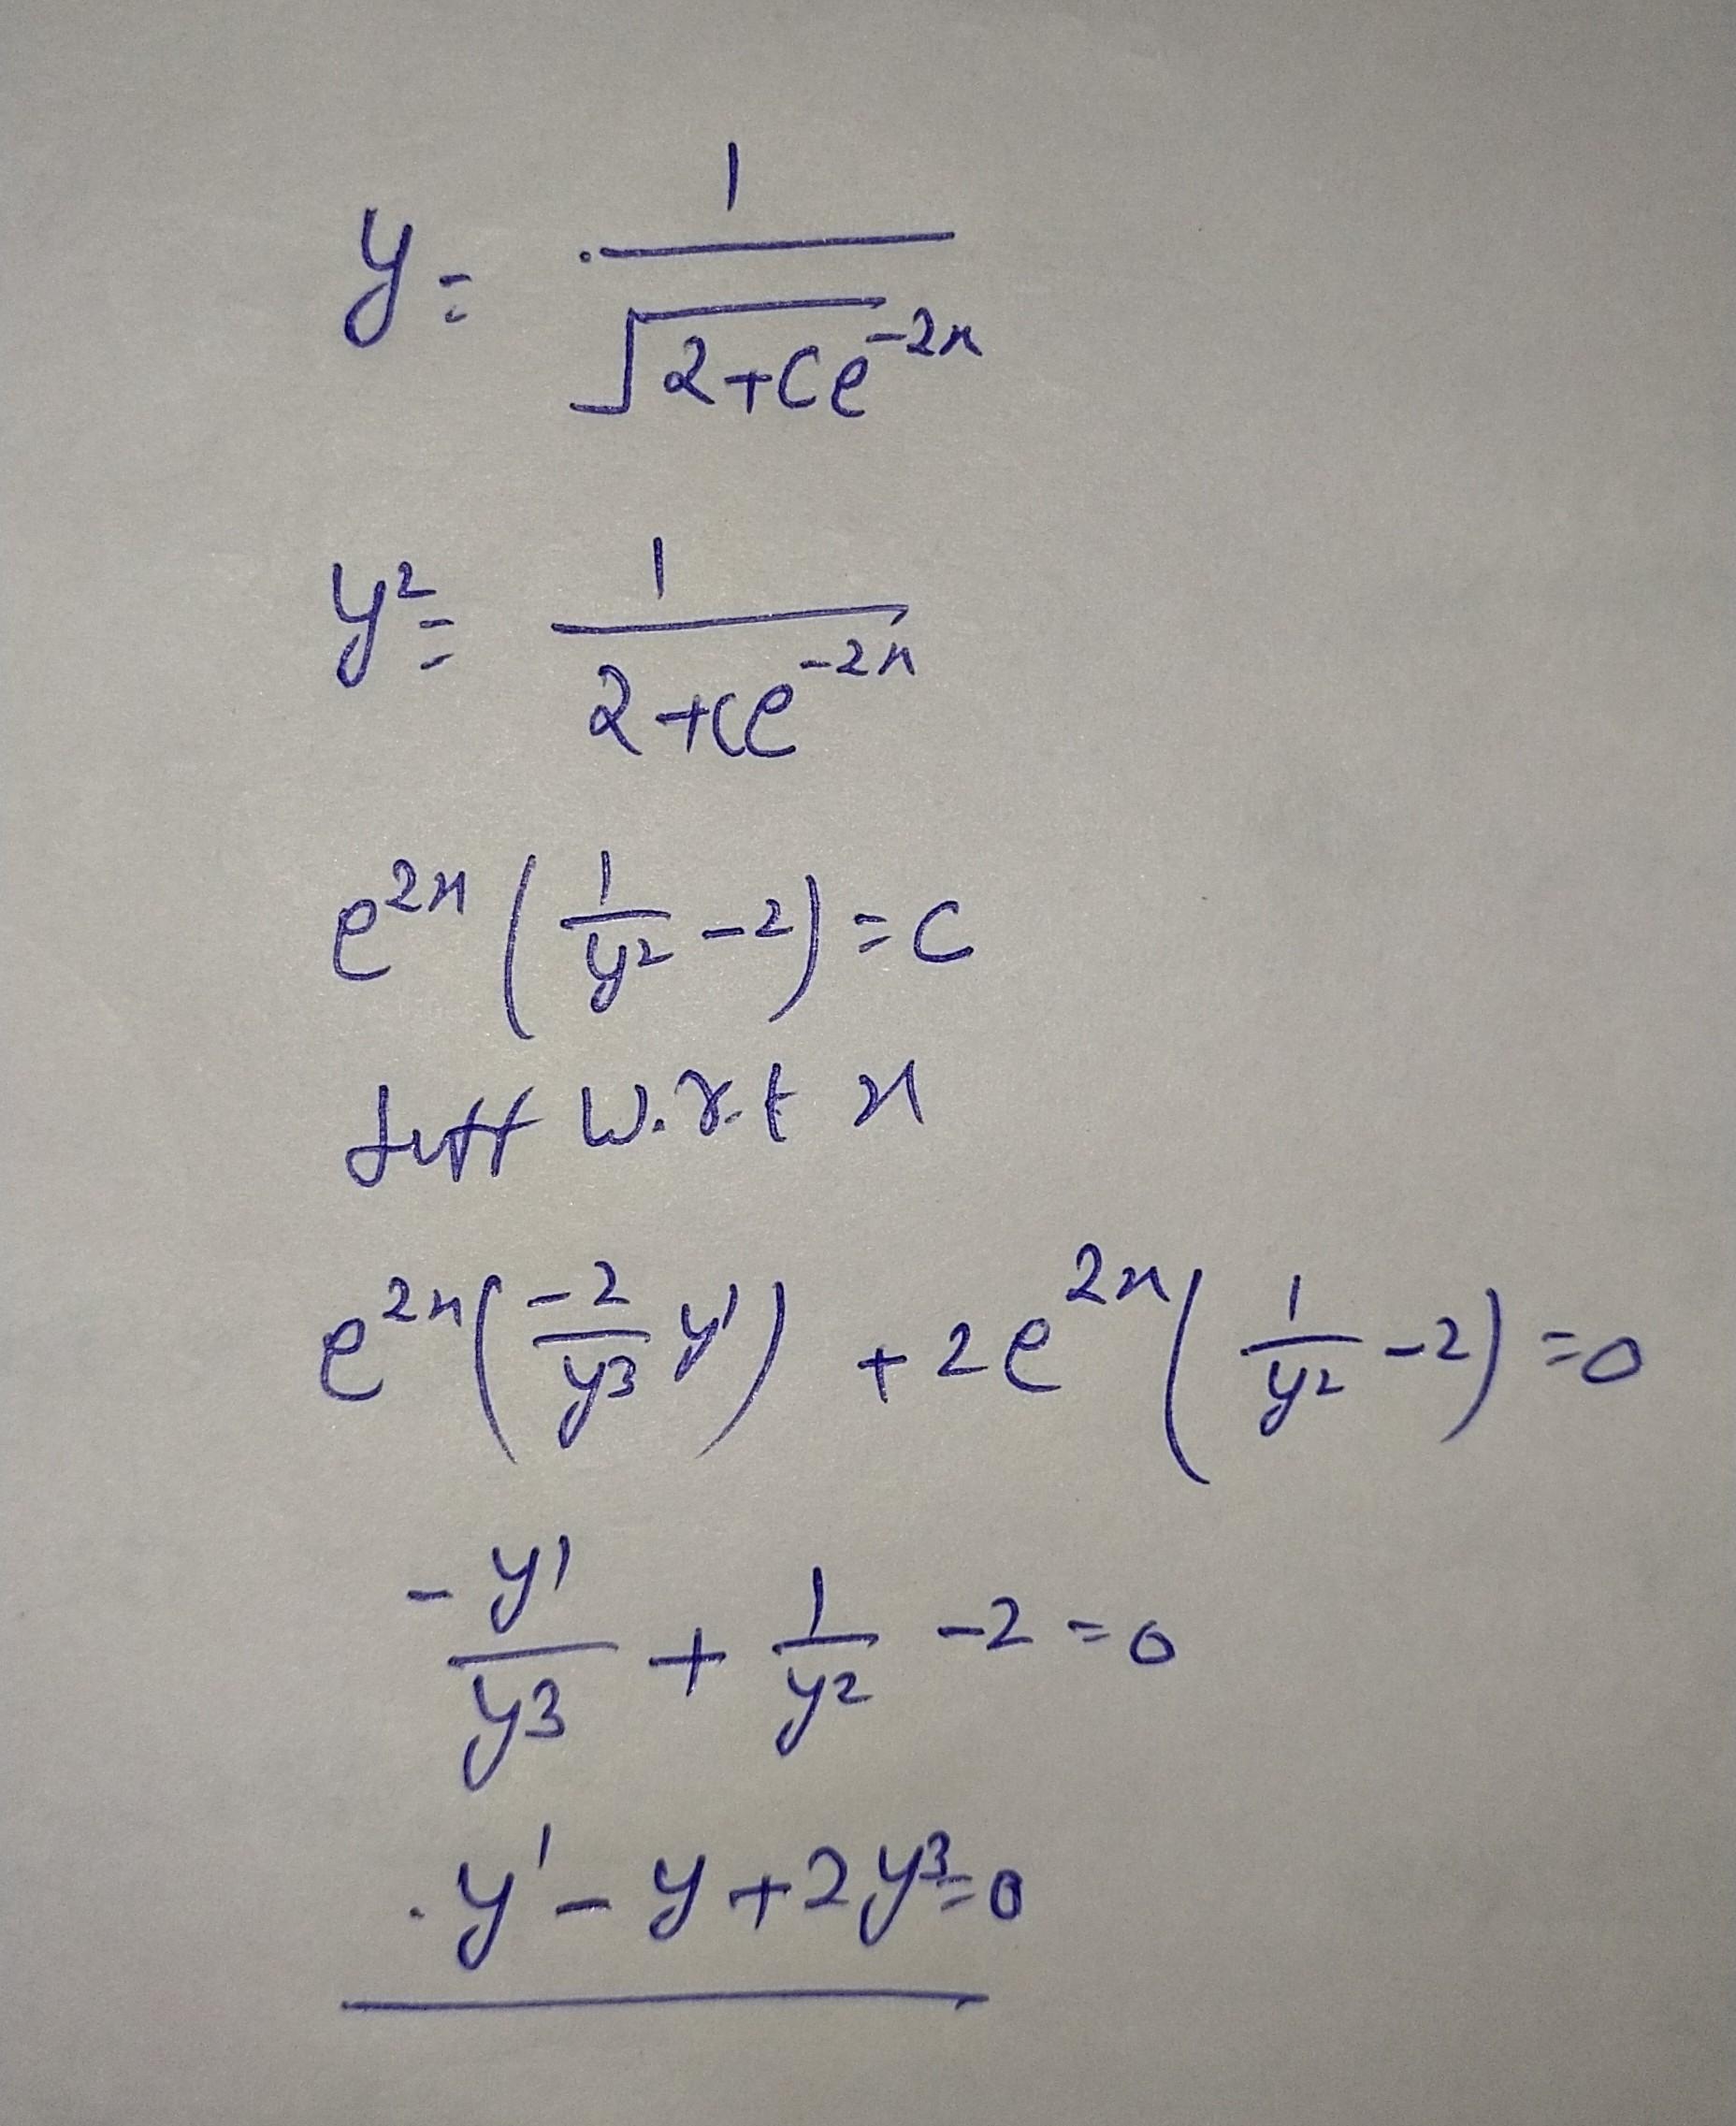 y = 1/√(2+Ce^(-2x))
y² = 1/(2+ce^(-2x))
e^(2x) (1/y² - 2) = C
diff w.r.t x
e^(2x) (-2/y³ y') + 2e^(2x) (1/y² - 2) = 0
-y'/y³ + 1/y² - 2 = 0
y' - y + 2y³ = 0